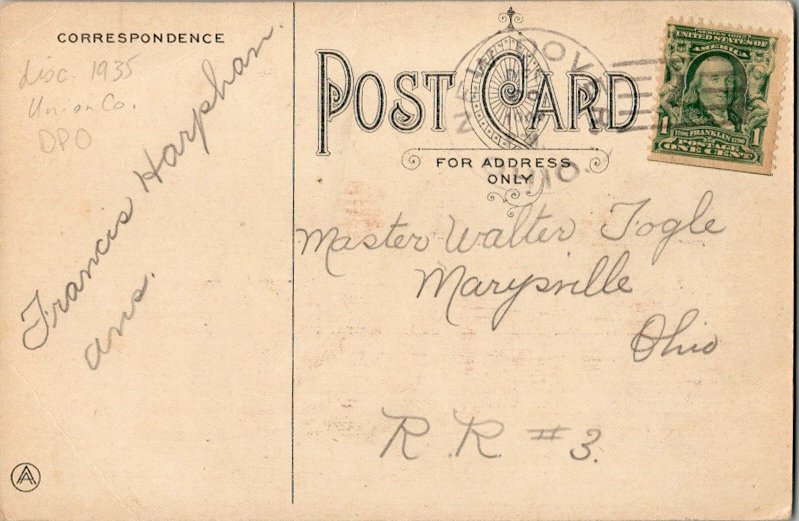 CORRESPONDENCE
disc. 1935
Union Co.
DPO
Francis Harphan.
ans.
POST CARD
FOR ADDRESS
ONLY
NEW DOVER
OHIO
SERIES 1902
UNITED STATES OF
AMERICA
1 1
FRANKLIN
POSTAGE
ONE CENT
Master Walter Fogle
Marysville
Ohio
R.R. #3.
A